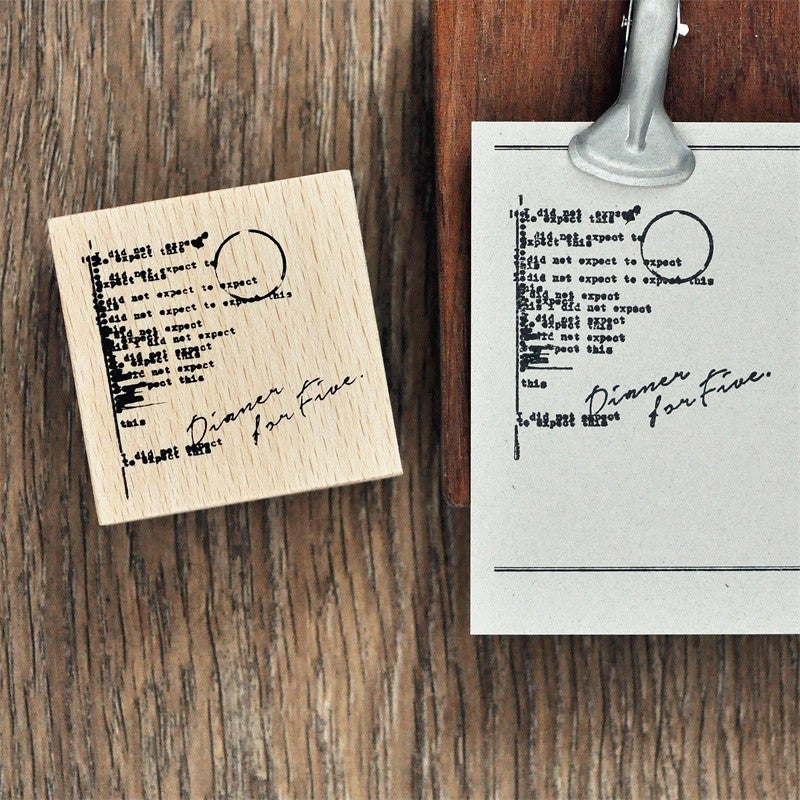 did not expe
expect this
did not expect to
expect this
did not expect to expect
did not expect to expect this
did not expect
I did not expect
did not expect
expect this
not expect
pect this
this
Dinner
for Five.
I did not expect
to expect this
I did not expe
to expect this
did not expect to
expect this
did not expect to expect
this
did not expect to expect this
this
did not expect
I did not expect
did not expect
expect this
did not expect
pect this
this
Dinner
for Five.
I did not expect
to expect this